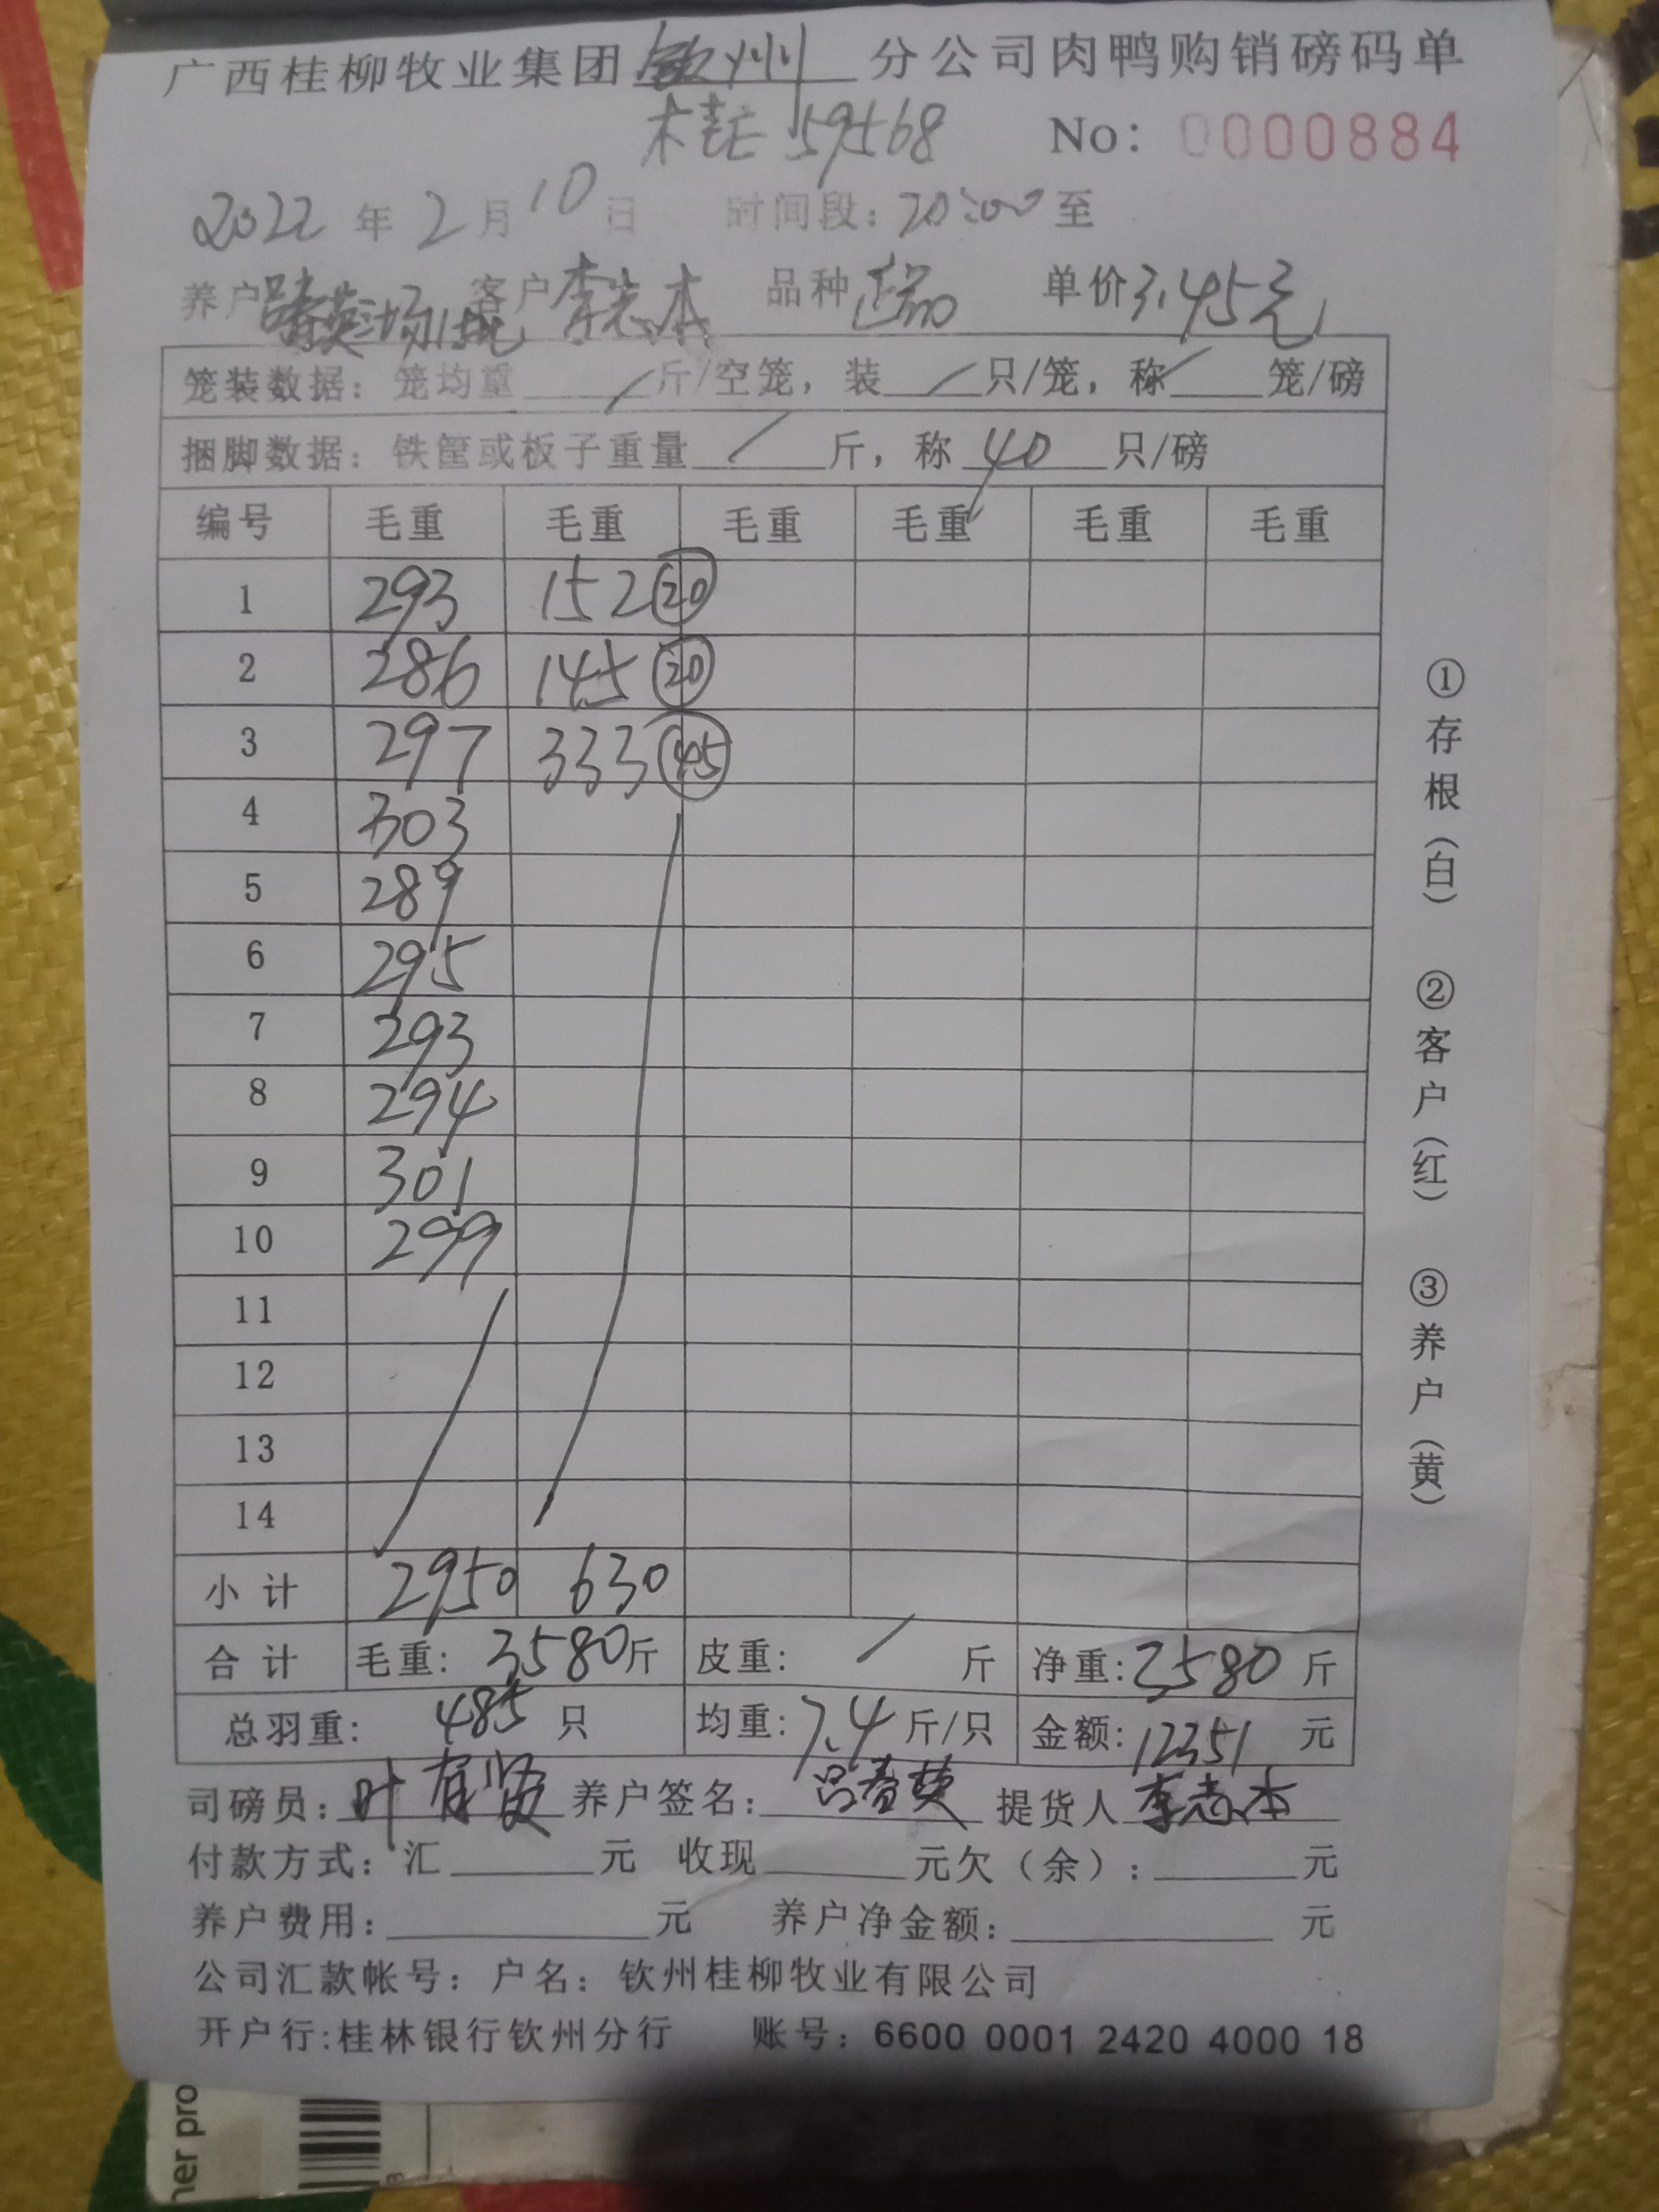 广西桂柳牧业集团 钦州 分公司肉鸭购销磅码单
59568 No: 0000884
2022 年 2 月 10 日 时间段: 20:00 至
养户 吕春英 客户 李志本 品种 单价 3.45元
笼装数据: 笼均重 / 斤/空笼, 装 / 只/笼, 称 / 笼/磅
捆脚数据: 铁筐或板子重量 / 斤, 称 40 只/磅
编号 毛重 毛重 毛重 毛重 毛重 毛重
1 293 152 20
2 286 145 20
3 297 333 45
4 303
5 289
6 295
7 293
8 294
9 301
10 299
11
12
13
14
小计 2950 630
合计 毛重: 3580 斤 皮重: / 斤 净重: 3580 斤
总羽重: 485 只 均重: 7.4 斤/只 金额: 12351 元
司磅员: 叶有贤 养户签名: 吕春英 提货人 李志本
付款方式: 汇 元 收现 元欠(余): 元
养户费用: 元 养户净金额: 元
公司汇款帐号: 户名: 钦州桂柳牧业有限公司
开户行:桂林银行钦州分行 账号: 6600 0001 2420 4000 18
①存根(白) ②客户(红) ③养户(黄)
her pro